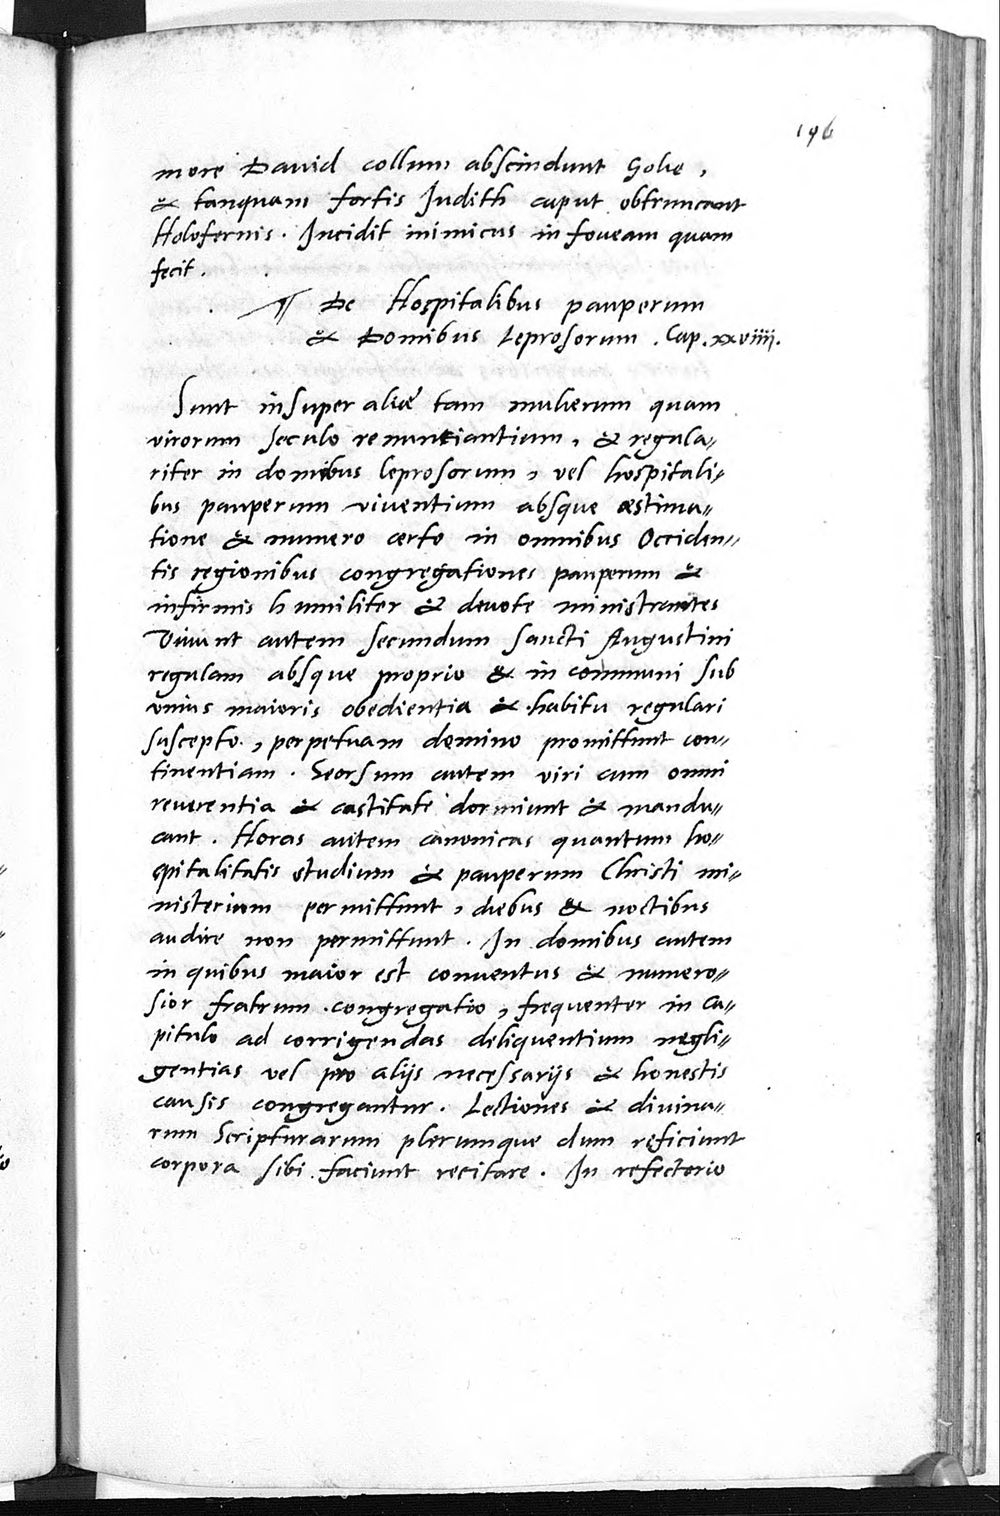 196
more David collum abscindunt Golie,
& tanquam fortis Judith caput obtruncant
Holofernis. Incidit inimicus in foveam quam
fecit.
¶ De Hospitalibus pauperum
& Domibus Leprosorum. Cap. xxviiij.
Sunt insuper aliæ tam mulierum quam
virorum seculo renuntiantium, & regula〃
riter in domibus leprosorum, vel hospitali〃
bus pauperum viventium absque æstima〃
tione & numero certo in omnibus Occiden〃
tis regionibus congregationes pauperum &
infirmis humiliter & devote ministrantes
Vivunt autem secundum sancti Augustini
regulam absque proprio & in communi sub
unius maioris obedientia & habitu regulari
suscepto, perpetuam domino promittunt con〃
tinentiam. Seorsum autem viri cum omni
reverentia & castitate dormiunt & mandu〃
cant. Horas autem canonicas quantum ho〃
spitalitatis studium & pauperum Christi mi〃
nisterium permittunt, diebus & noctibus
audire non permittunt. In domibus autem
in quibus maior est conventus & numero〃
sior fratrum congregatio, frequenter in ca〃
pitulo ad corrigendas deliquentium negli〃
gentias vel pro alijs necessarijs & honestis
causis congregantur. Lectiones & divina〃
rum Scripturarum plerumque dum reficiunt
corpora sibi faciunt recitare. In refectorio